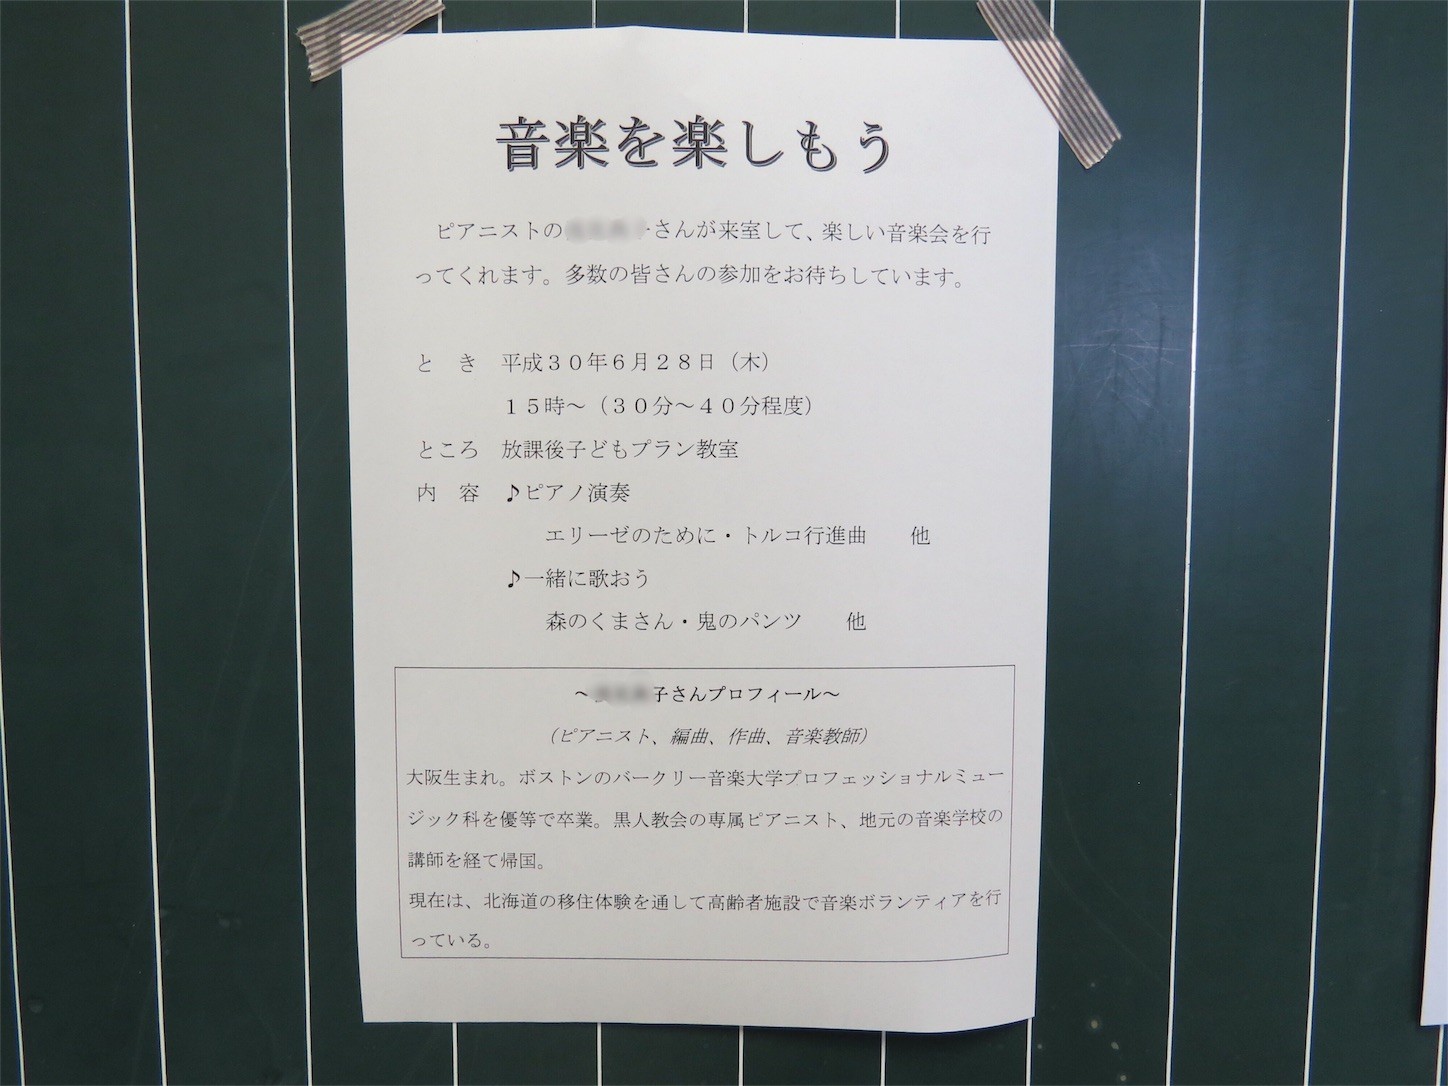 音楽を楽しもう
ピアニストの さんが来室して、楽しい音楽会を行
ってくれます。多数の皆さんの参加をお待ちしています。
と　き　平成３０年６月２８日（木）
１５時～（３０分～４０分程度）
ところ　放課後子どもプラン教室
内　容　♪ピアノ演奏
エリーゼのために・トルコ行進曲　　他
♪一緒に歌おう
森のくまさん・鬼のパンツ　　他
～ 子さんプロフィール～
（ピアニスト、編曲、作曲、音楽教師）
大阪生まれ。ボストンのバークリー音楽大学プロフェッショナルミュー
ジック科を優等で卒業。黒人教会の専属ピアニスト、地元の音楽学校の
講師を経て帰国。
現在は、北海道の移住体験を通して高齢者施設で音楽ボランティアを行
っている。